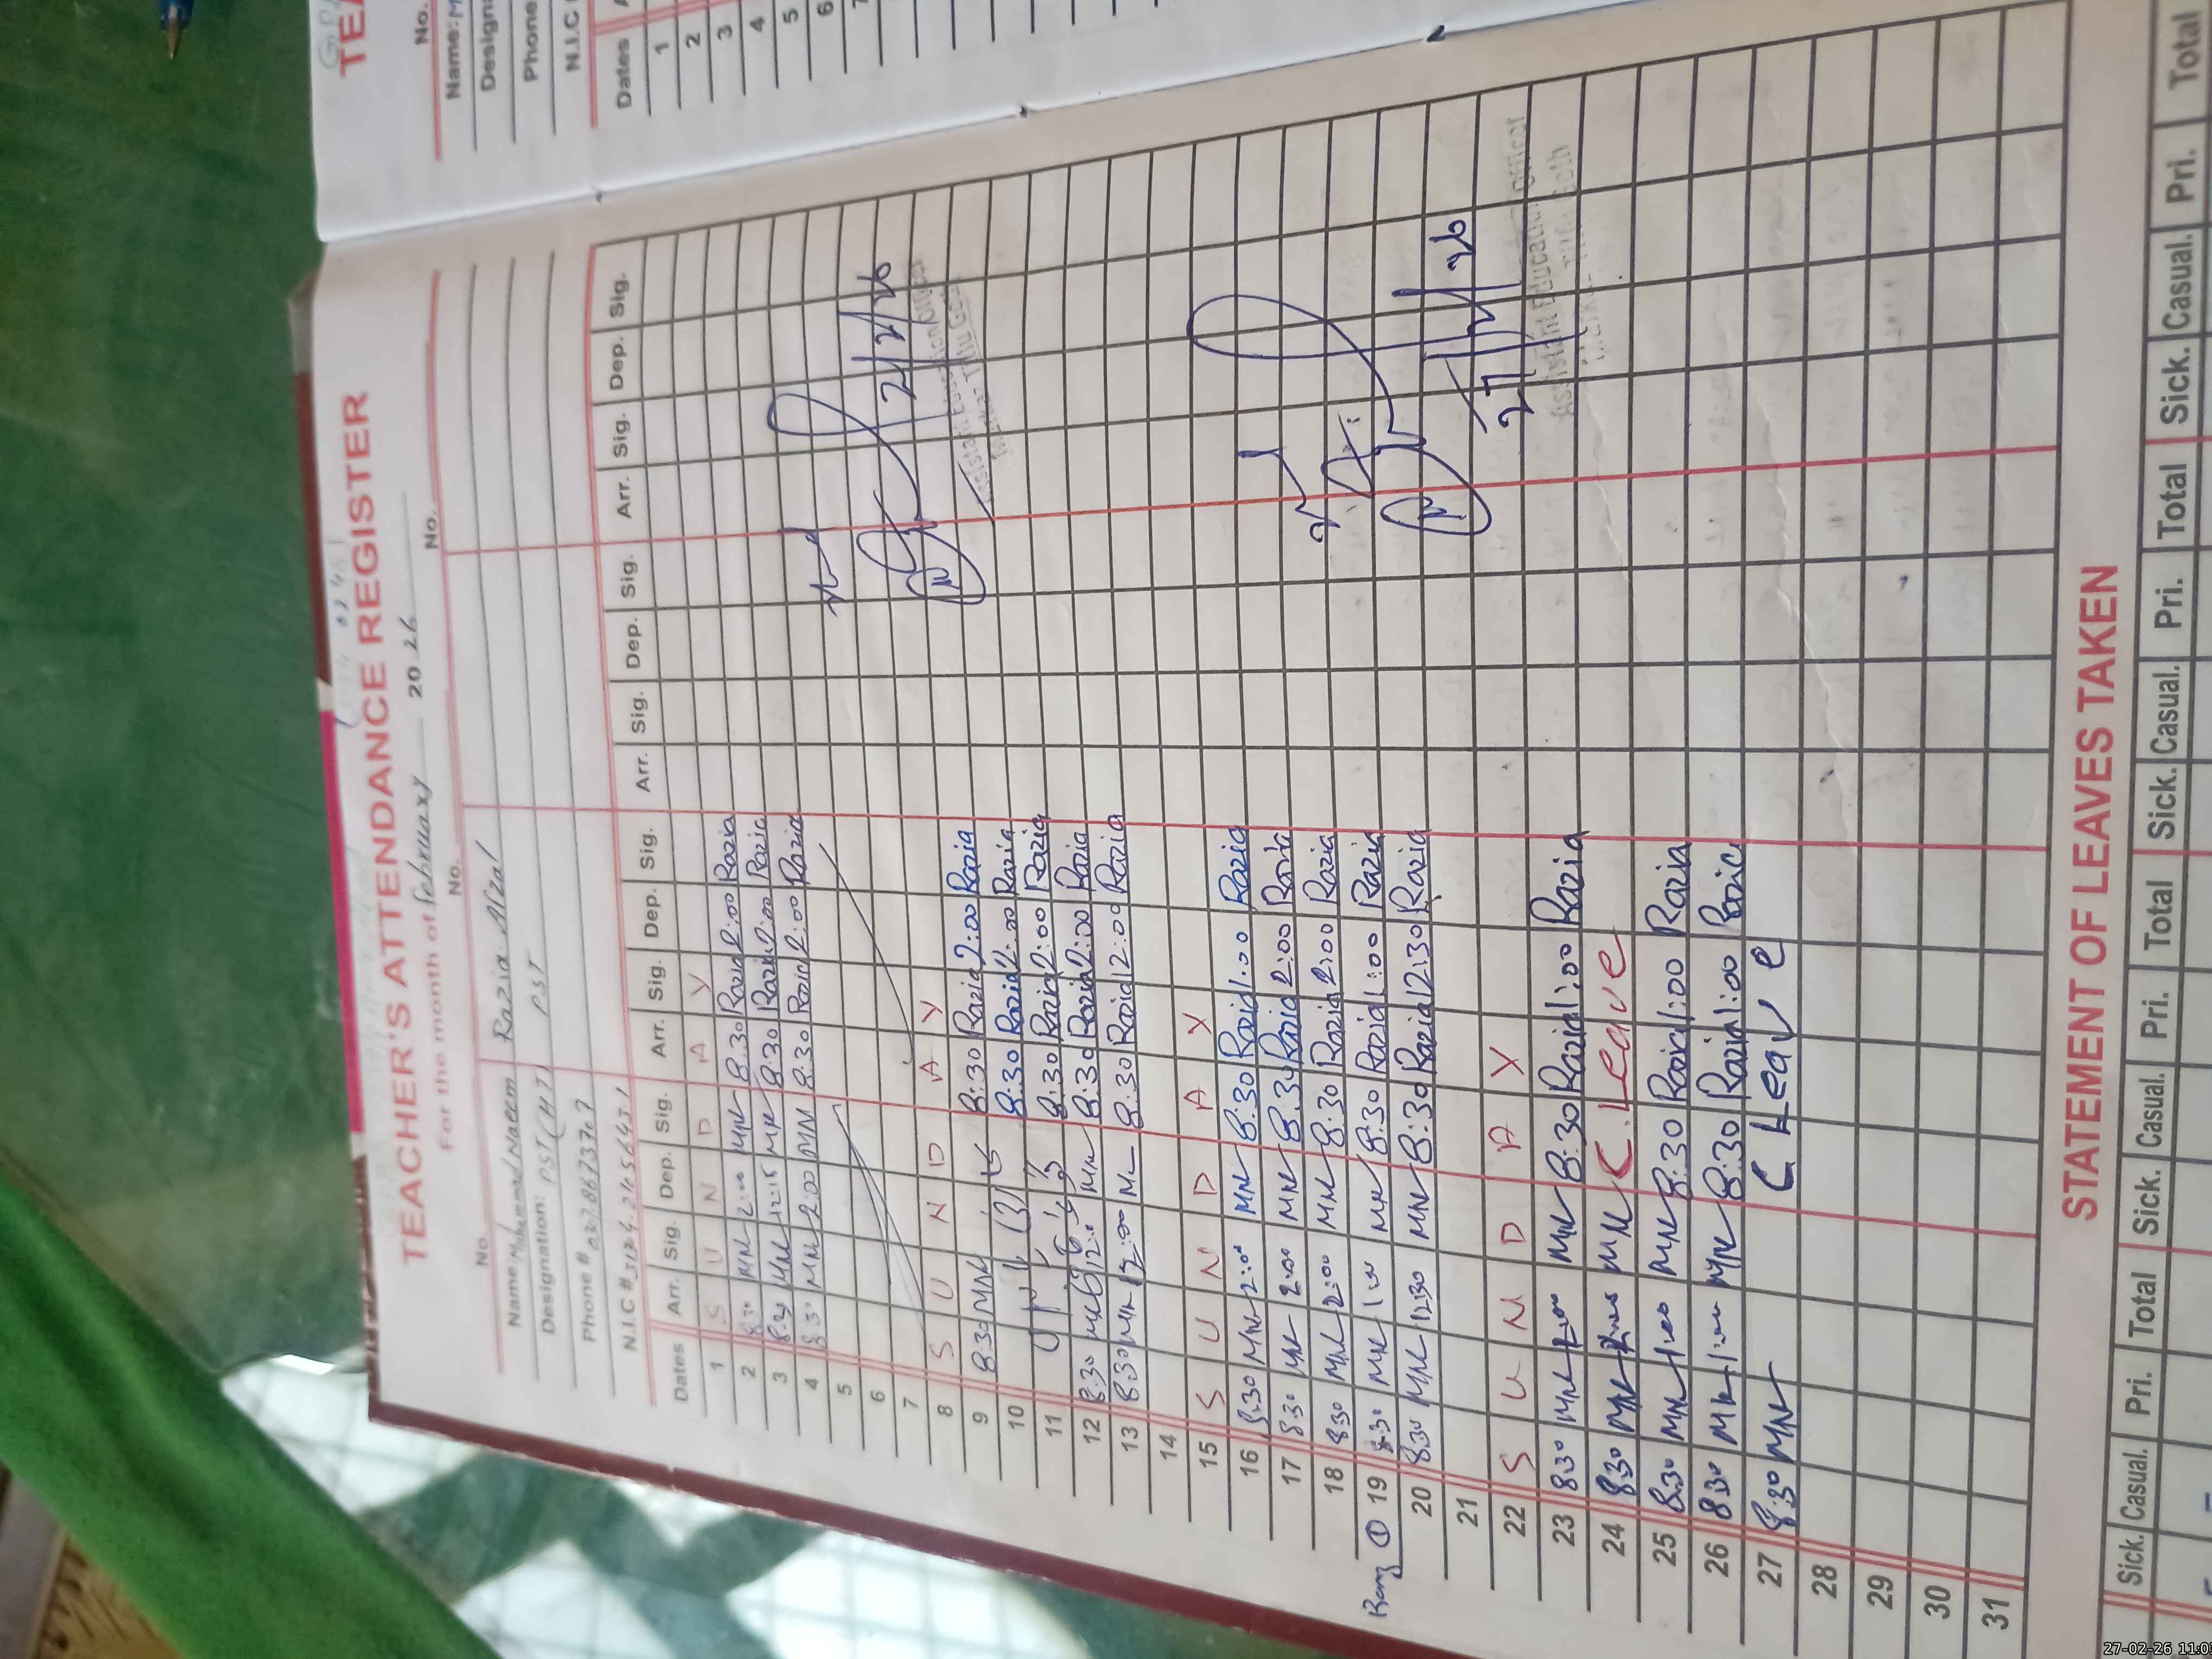 TEACHER'S ATTENDANCE REGISTER
For the month of February 2026
No. No. No.
Name Muhammad Naeem Razia Afzal
Designation: PST (HT) PST
Phone #
N.I.C #
Dates Arr. Sig. Dep. Sig. Arr. Sig. Dep. Sig. Arr. Sig. Dep. Sig. Arr. Sig. Dep. Sig.
1 S U N D A Y
2 8:30 MNL 2:00 MNL 8:30 Razia 2:00 Razia
3 8:30 MNL 12:15 MNL 8:30 Razia 2:00 Razia
4 8:30 MNL 2:00 MNL 8:30 Razia 2:00 Razia
5
6
7
8 S U N D A Y
9 8:30 MNL 8:30 Razia 2:00 Razia
10 8:30 Razia 2:00 Razia
11 8:30 Razia 2:00 Razia
12 8:30 MNL 12:0 MNL 8:30 Razia 2:00 Razia
13 8:30 MNL 12:00 8:30 Razia 12:00 Razia
14
15 S U N D A Y
16 8:30 MNL 2:00 MNL 8:30 Razia 1:00 Razia
17 8:30 MNL 2:00 MNL 8:30 Razia 2:00 Razia
18 8:30 MNL 2:00 MNL 8:30 Razia 2:00 Razia
① 19 8:30 MNL 1:00 MNL 8:30 Razia 1:00 Razia
20 8:30 MNL 12:30 MNL 8:30 Razia 12:30 Razia
21
22 S U N D A Y
23 8:30 MNL 1:00 MNL 8:30 Razia 1:00 Razia
24 8:30 MNL MNL C. Leave
25 8:30 MNL 1:00 MNL 8:30 Razia 1:00 Razia
26 8:30 MNL 1:00 MNL 8:30 Razia 1:00 Razia
27 8:30 MNL C Leave
28
29
30
31
2/2/26
Assistant Education Officer
27/2/26
Assistant Education Officer
STATEMENT OF LEAVES TAKEN
Sick. Casual. Pri. Total Sick. Casual. Pri. Total Sick. Casual. Pri. Total Sick. Casual. Pri. Total
TEA
No.
Name: M
Designa
Phone
N.I.C
Dates
1
2
3
4
5
6
7
27-02-26 11:0